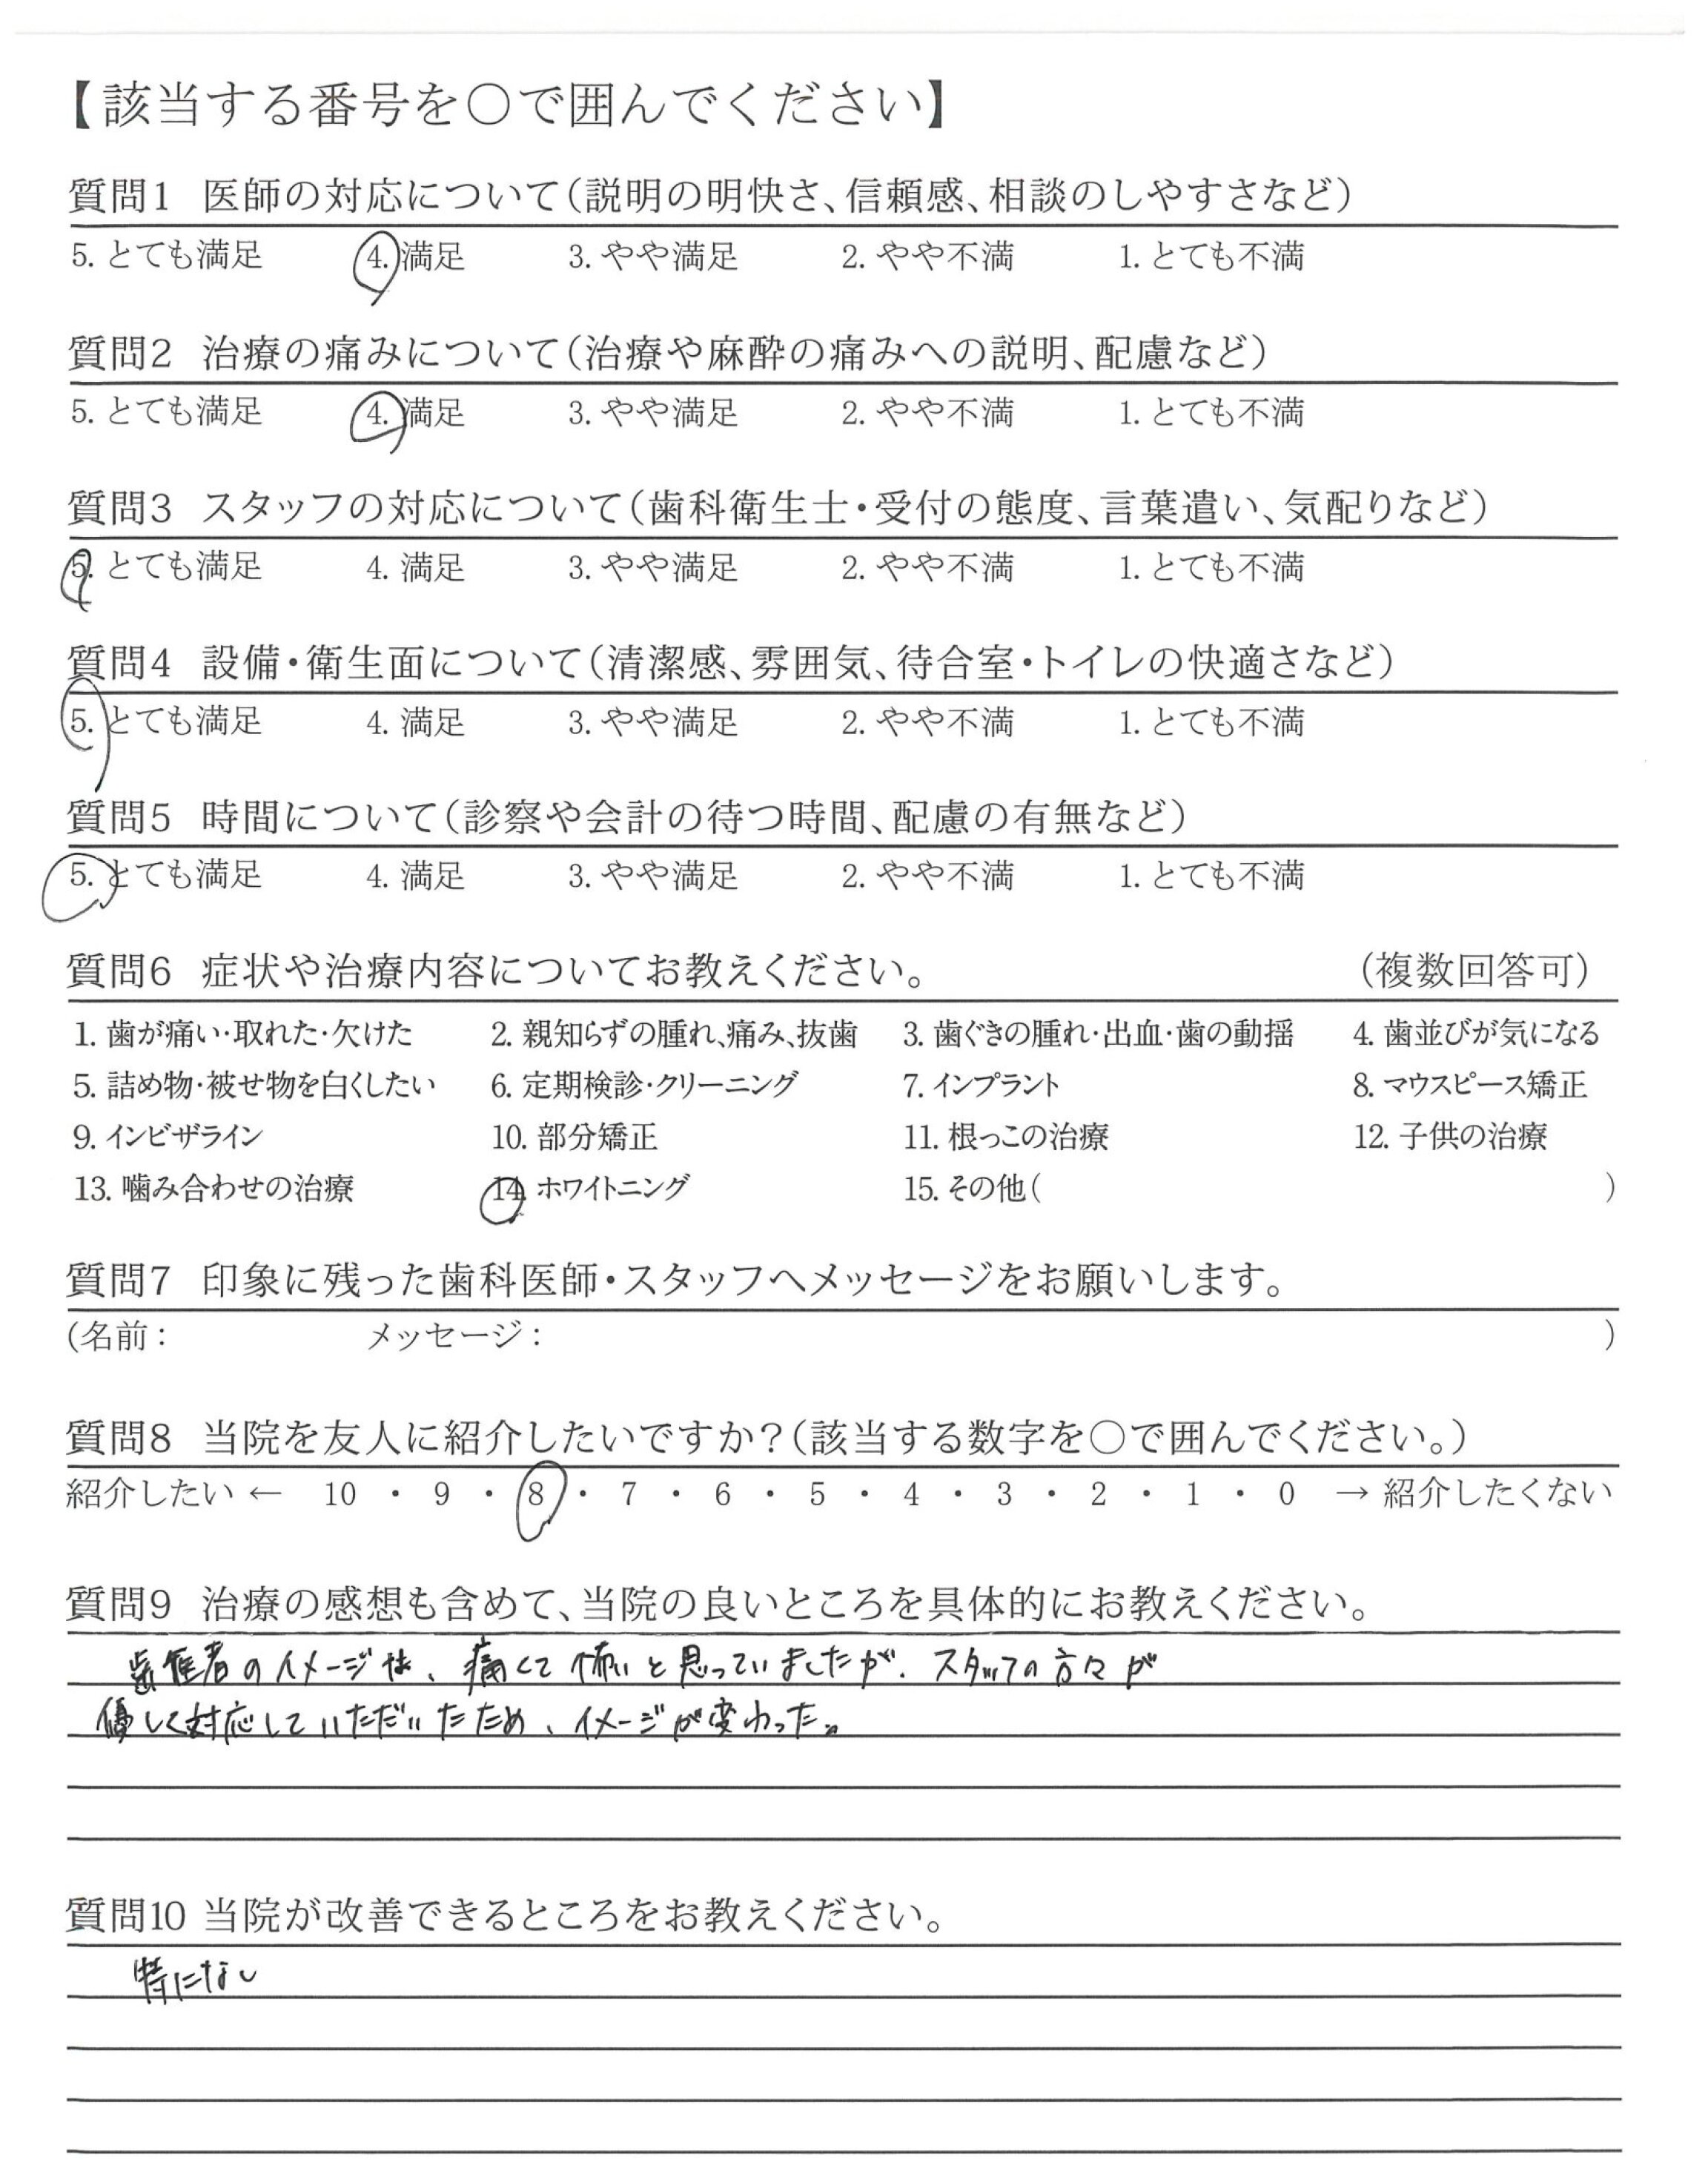 【該当する番号を○で囲んでください】
質問1 医師の対応について(説明の明快さ、信頼感、相談のしやすさなど)
5. とても満足 4. 満足 3. やや満足 2. やや不満 1. とても不満
質問2 治療の痛みについて(治療や麻酔の痛みへの説明、配慮など)
5. とても満足 4. 満足 3. やや満足 2. やや不満 1. とても不満
質問3 スタッフの対応について(歯科衛生士・受付の態度、言葉遣い、気配りなど)
5. とても満足 4. 満足 3. やや満足 2. やや不満 1. とても不満
質問4 設備・衛生面について(清潔感、雰囲気、待合室・トイレの快適さなど)
5. とても満足 4. 満足 3. やや満足 2. やや不満 1. とても不満
質問5 時間について(診察や会計の待つ時間、配慮の有無など)
5. とても満足 4. 満足 3. やや満足 2. やや不満 1. とても不満
質問6 症状や治療内容についてお教えください。 (複数回答可)
1. 歯が痛い・取れた・欠けた 2. 親知らずの腫れ、痛み、抜歯 3. 歯ぐきの腫れ・出血・歯の動揺 4. 歯並びが気になる
5. 詰め物・被せ物を白くしたい 6. 定期検診・クリーニング 7. インプラント 8. マウスピース矯正
9. インビザライン 10. 部分矯正 11. 根っこの治療 12. 子供の治療
13. 噛み合わせの治療 14. ホワイトニング 15. その他( )
質問7 印象に残った歯科医師・スタッフへメッセージをお願いします。
(名前: メッセージ: )
質問8 当院を友人に紹介したいですか?(該当する数字を○で囲んでください。)
紹介したい ← 10 ・ 9 ・ 8 ・ 7 ・ 6 ・ 5 ・ 4 ・ 3 ・ 2 ・ 1 ・ 0 → 紹介したくない
質問9 治療の感想も含めて、当院の良いところを具体的にお教えください。
歯医者のイメージは、痛くて怖いと思っていましたが、スタッフの方々が
優しく対応していただいたため、イメージが変わった。
質問10 当院が改善できるところをお教えください。
特にない